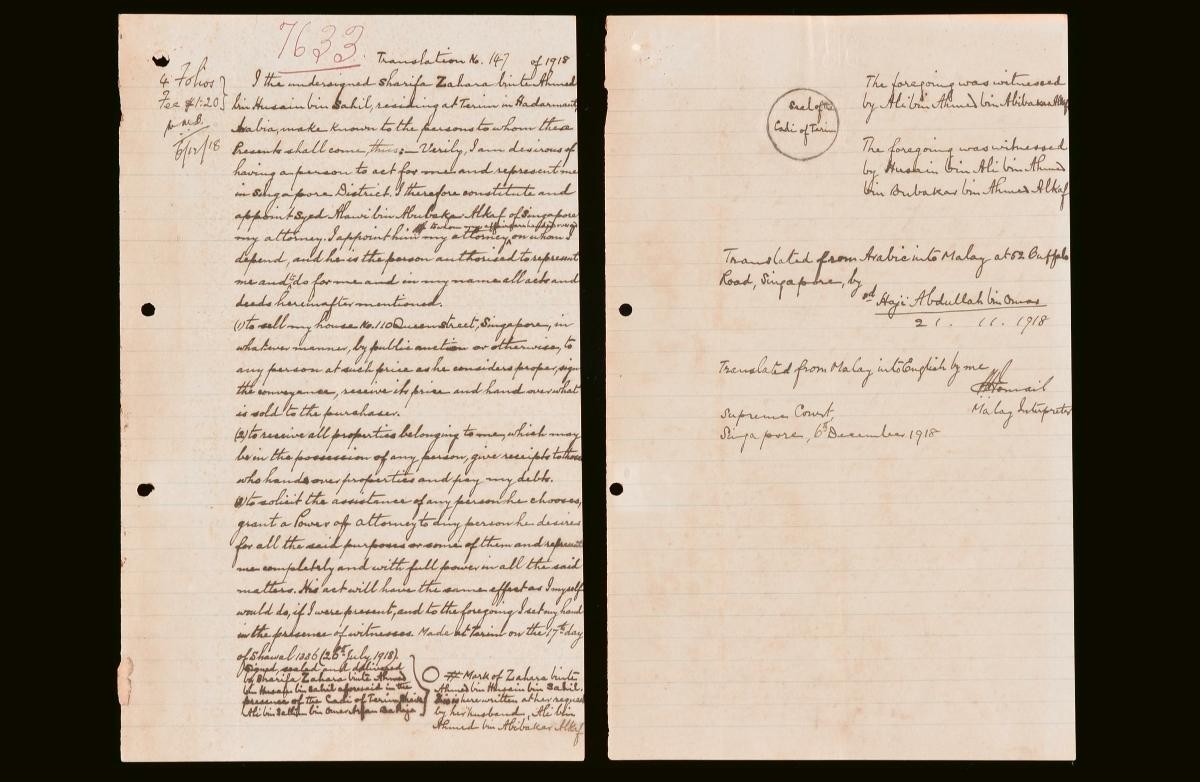 7633
Translation No. 147 of 1918
4 Folios
Fee $1.20
6/12/18
I the undersigned Sharifa Zahara binte Ahmed
bin Husain bin Sahil, residing at Terim in Hadarmaut,
Arabia, make known to the persons to whom these
Presents shall come, thus:– Verily, I am desirous of
having a person to act for me and represent me
in Singapore District. I therefore constitute and
appoint Syed Alawi bin Abubakar Alkaf of Singapore
my attorney. I appoint him my attorney on whom I
depend, and he is the person authorised to represent
me and to do for me and in my name all acts and
deeds hereinafter mentioned.
(1) to sell my house No. 110 Queen street, Singapore, in
whatever manner, by public auction or otherwise, to
any person at such price as he considers proper, sign
the conveyance, receive its price and hand over what
is sold to the purchaser.
(2) to receive all properties belonging to me, which may
be in the possession of any person, give receipts to those
who hands over properties and pay my debts.
(3) to solicit the assistance of any person he chooses,
grant a Power of Attorney to any person he desires
for all the said purposes or some of them and represent
me completely and with full power in all the said
matters. His act will have the same effect as I myself
would do, if I were present, and to the foregoing I set my hand
in the presence of witnesses. Made at Terim on the 17th day
of Shawal 1336 (26th July, 1918).
Signed, sealed and delivered
by Sharifa Zahara binte Ahmed
bin Husain bin Sahil aforesaid in the
presence of the Cadi of Terim
Ali bin Salim bin Omar
# Mark of Zahara binte
Ahmed bin Husain bin Sahil.
here written at her request
by her husband, Ali bin
Ahmed bin Abibakar Alkaf
Seal of the
Cadi of Terim
The foregoing was witnessed
by Ali bin Ahmed bin Abibakar Alkaf
The foregoing was witnessed
by Husain bin Ali bin Ahmed
bin Bubakar bin Ahmed Alkaf
Translated from Arabic into Malay at 52 Buffalo
Road, Singapore, by
sd Haji Abdullah bin Omar
21. 11. 1918
Translated from Malay into English by me
Malay Interpreter
Supreme Court,
Singapore, 6th December 1918